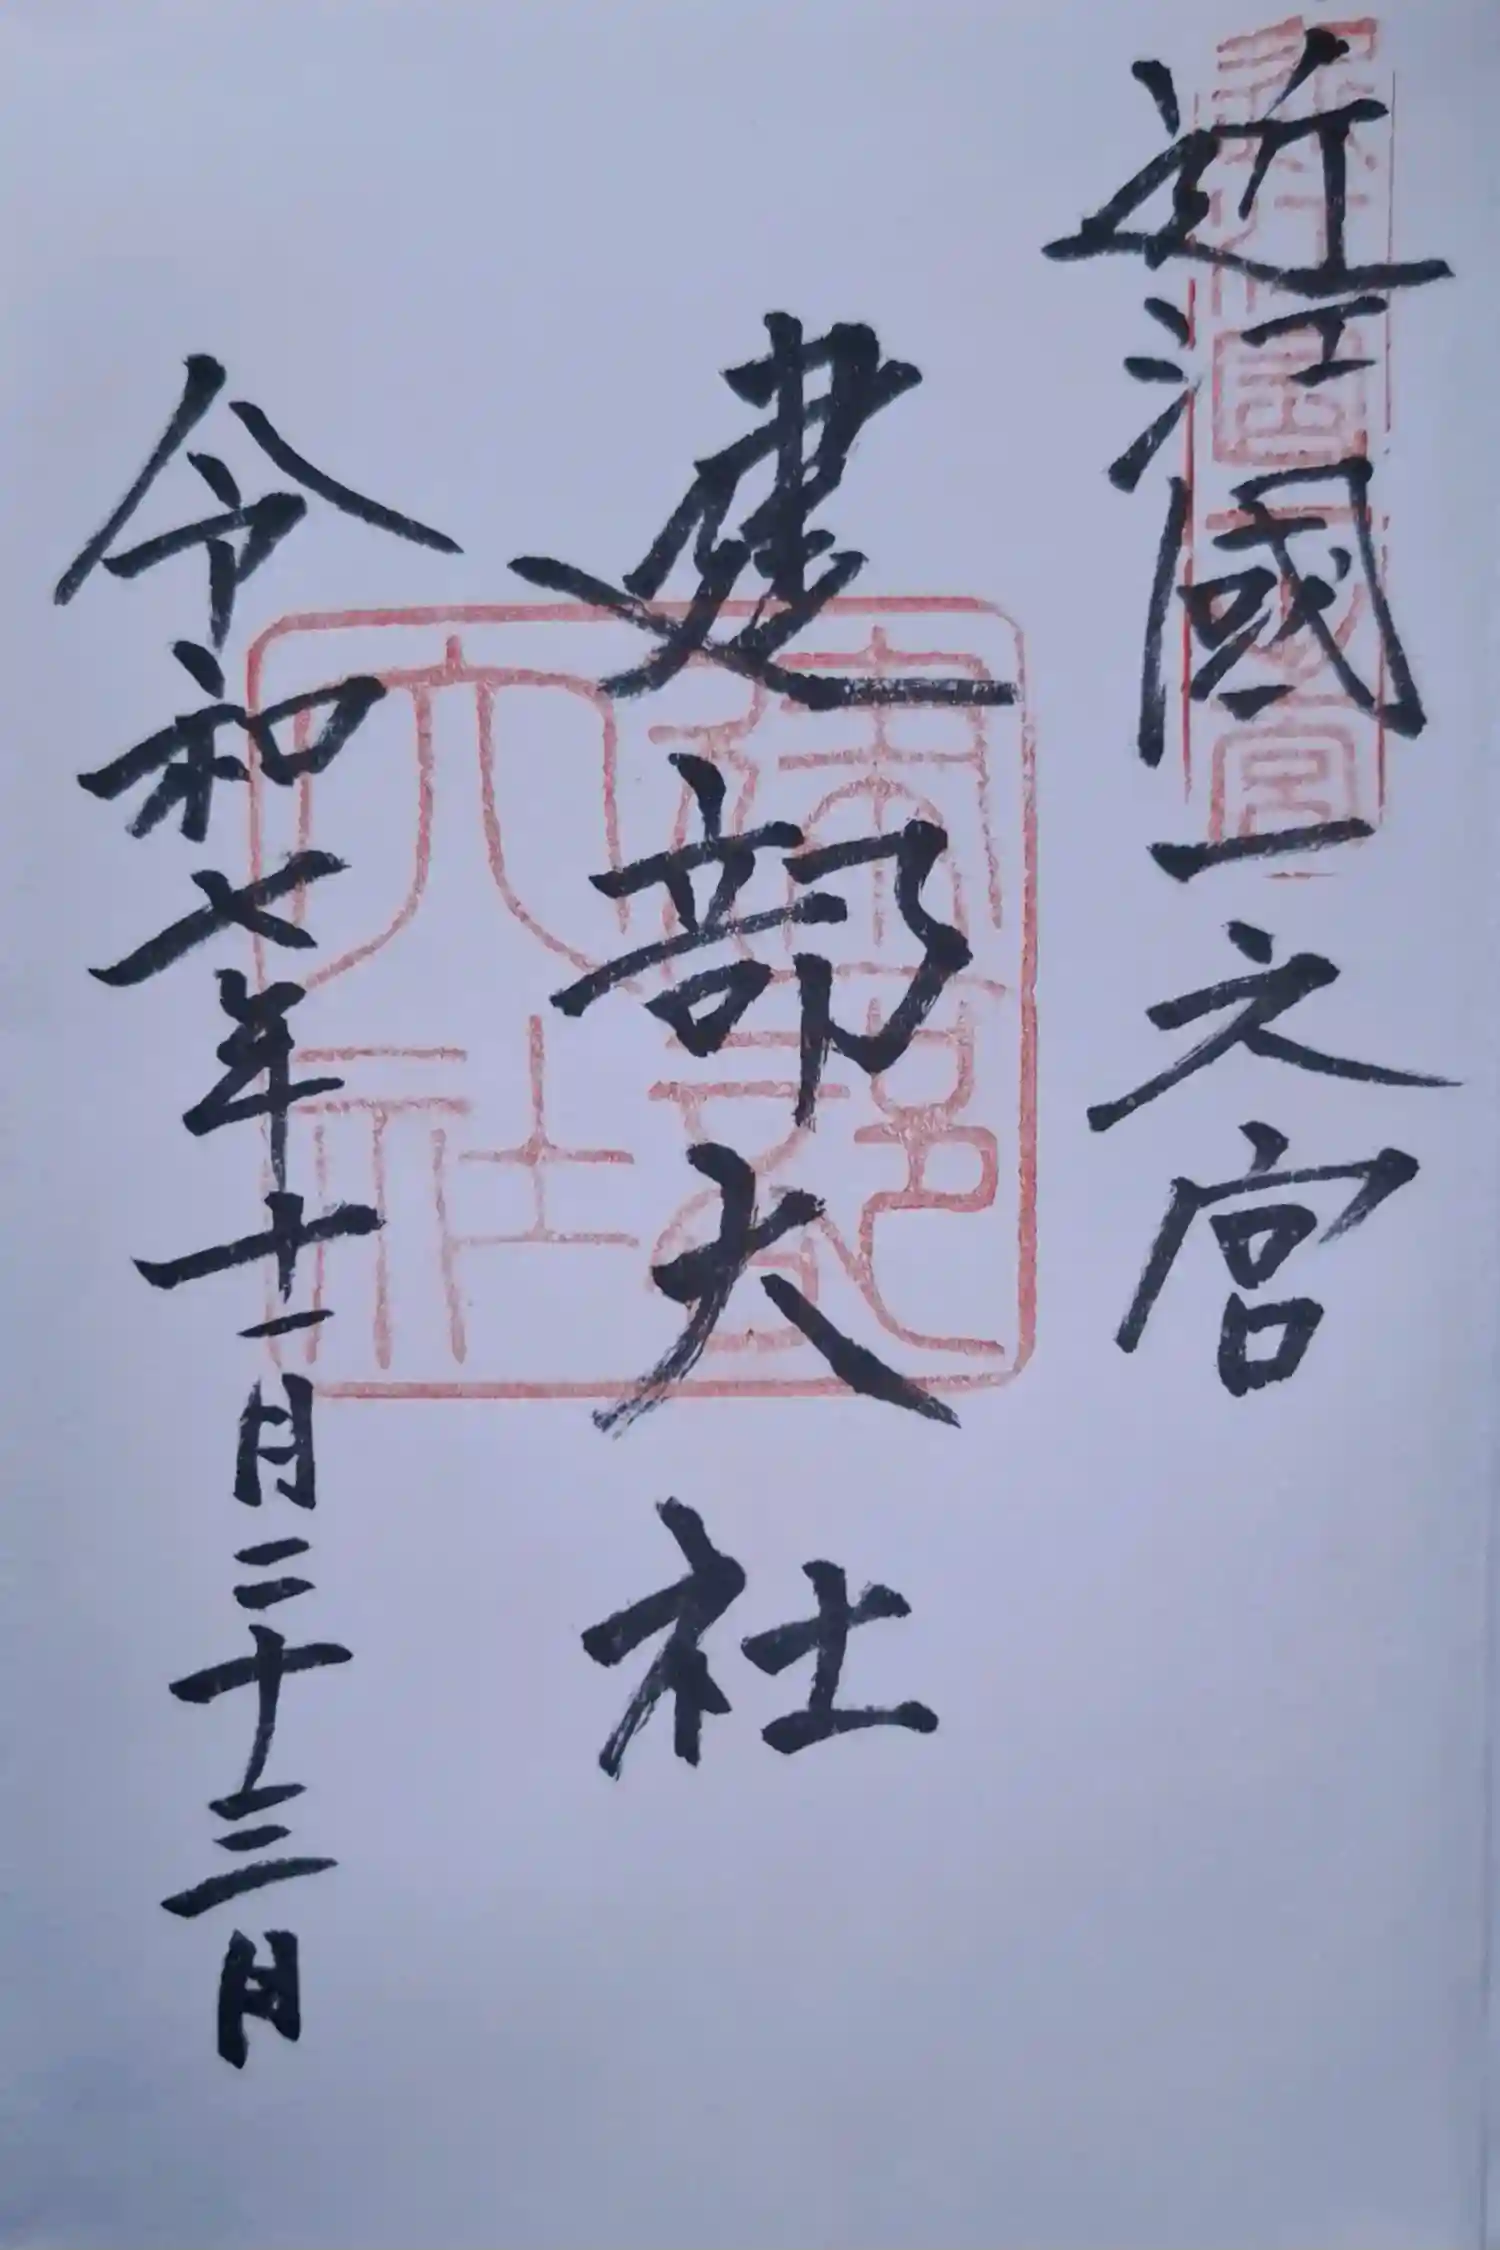 近江國一之宮
建部大社
令和七年十一月二十三日
近江国一之宮
建部大社